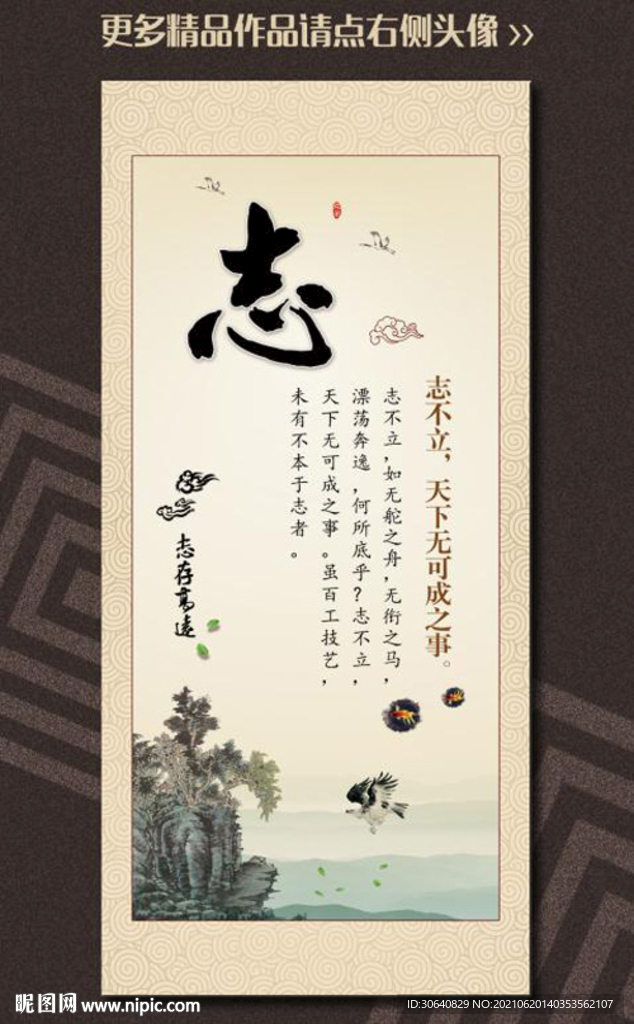 更多精品作品请点右侧头像 >>
志
志不立，天下无可成之事。
志不立，如无舵之舟，无衔之马，
漂荡奔逸，何所底乎？志不立，
天下无可成之事。虽百工技艺，
未有不本于志者。
志存高远
昵图网 www.nipic.com
ID:30640829 NO:20210620140353562107